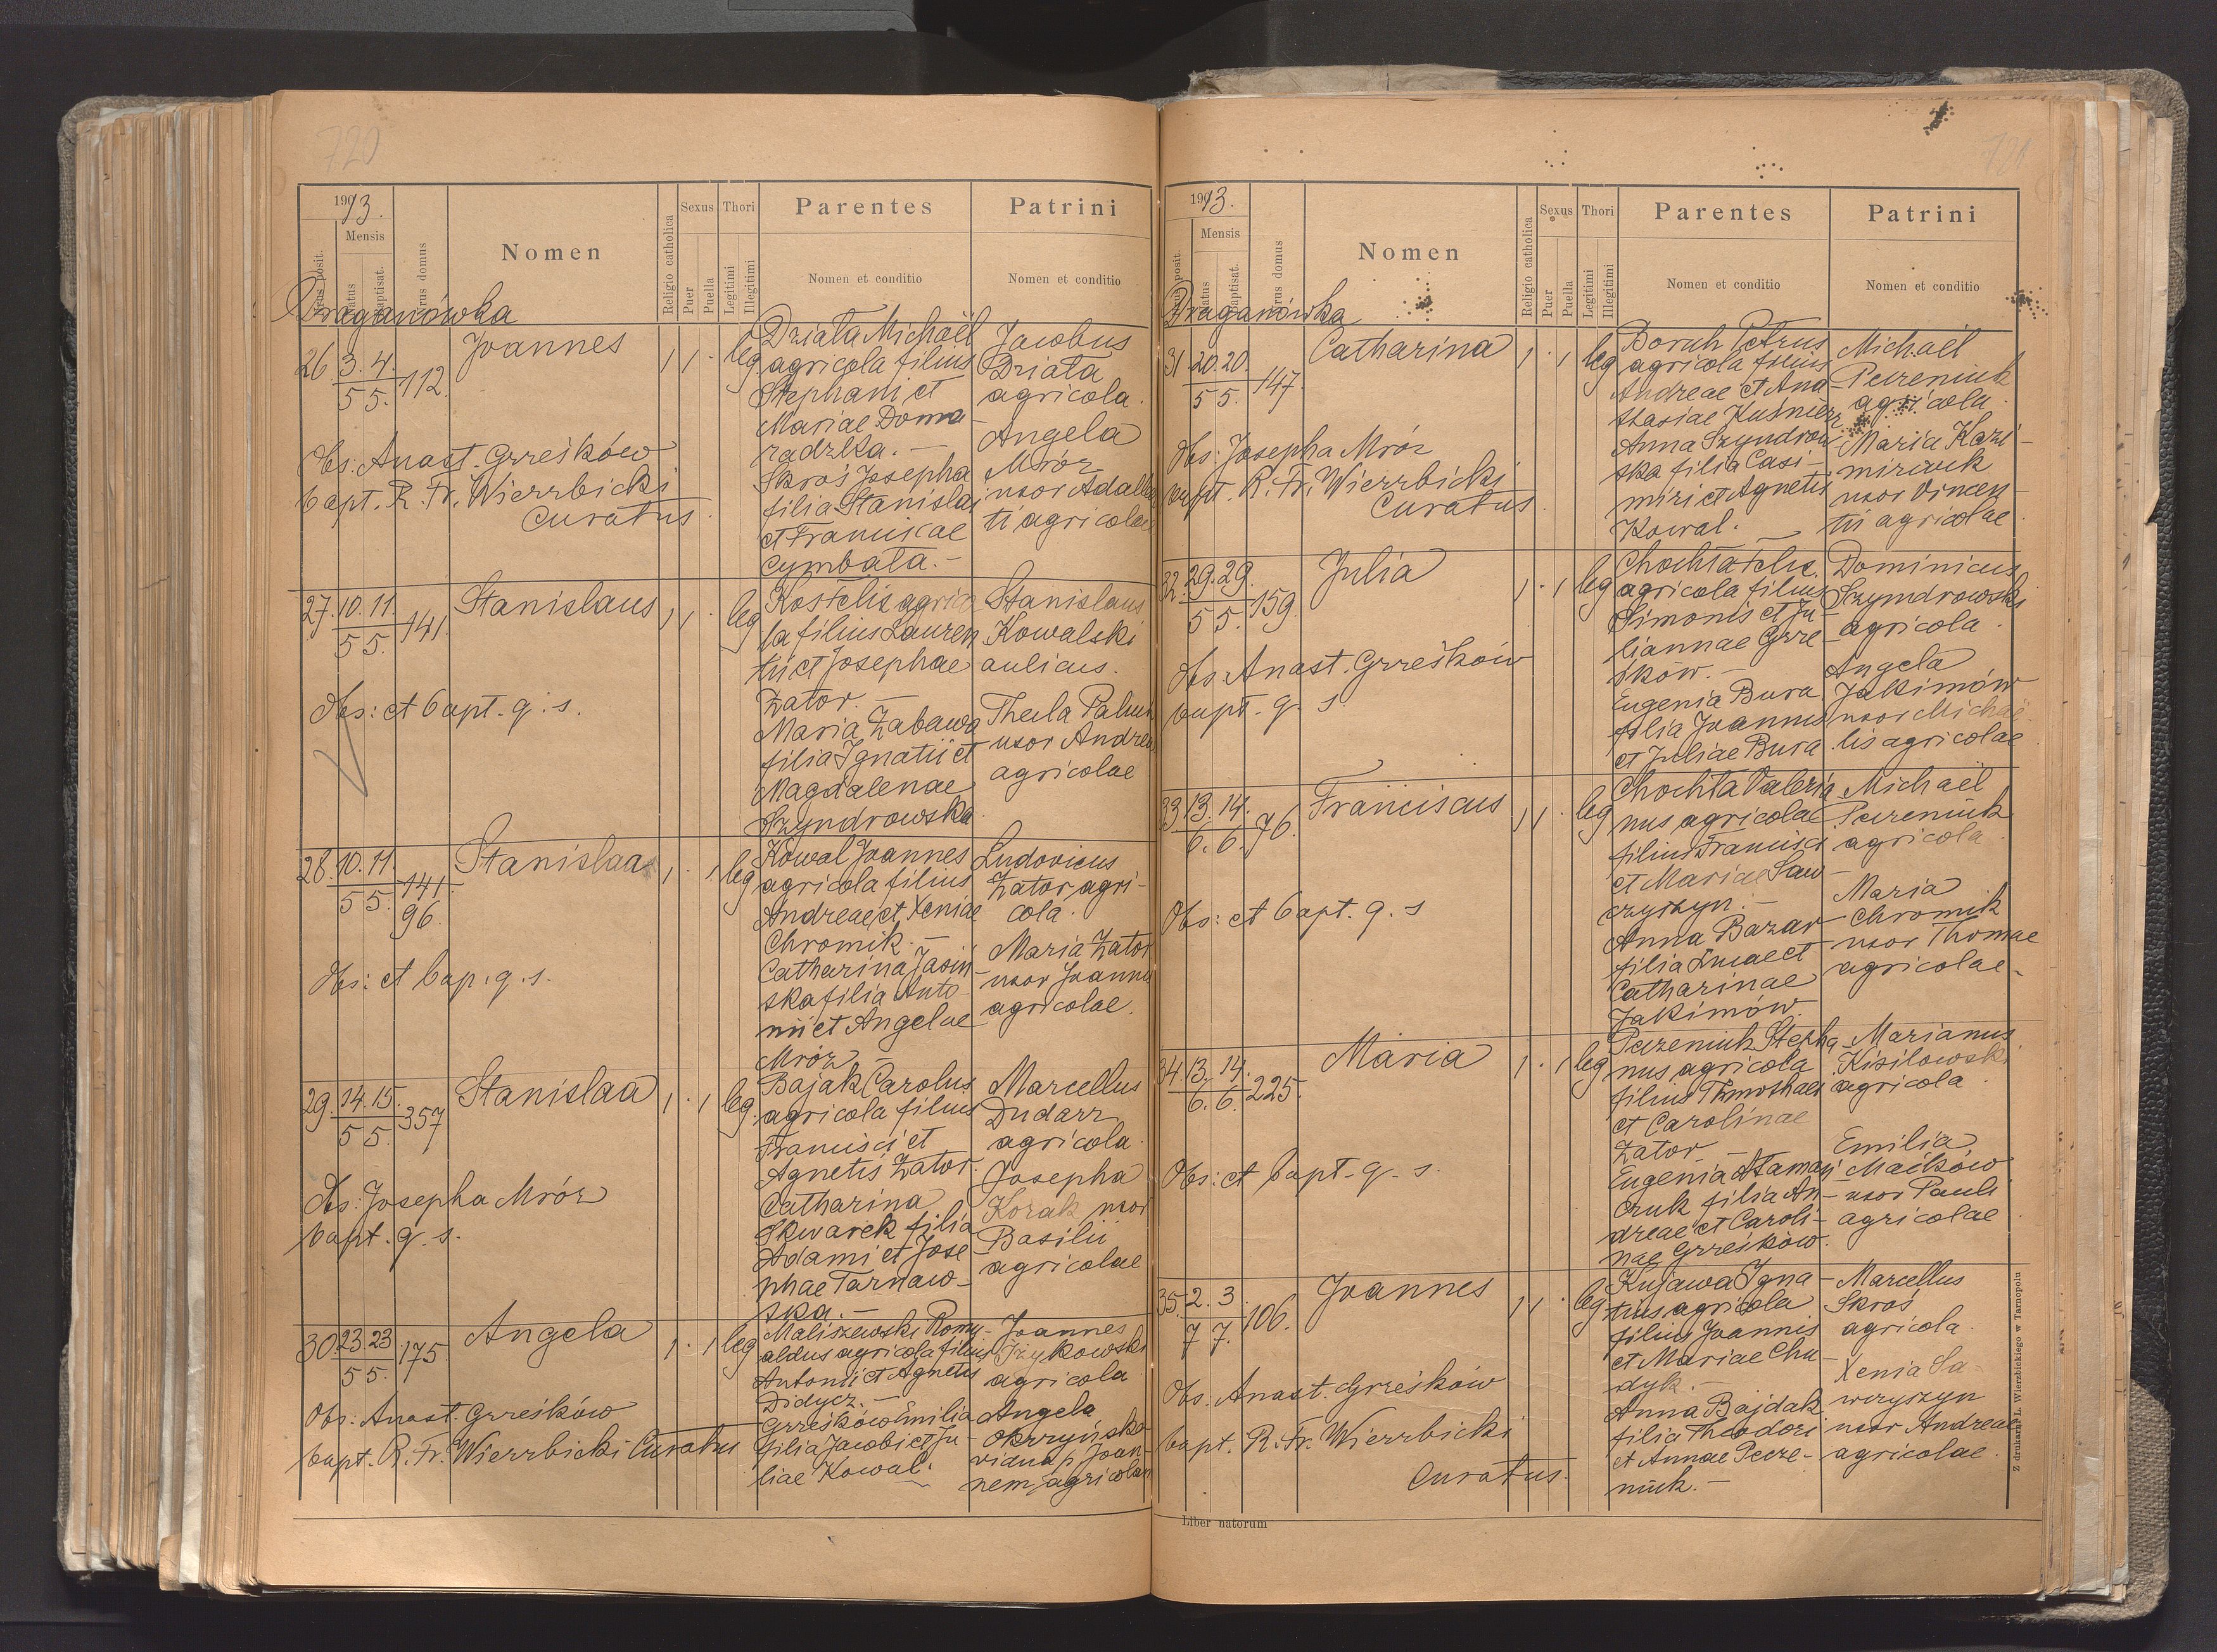 720
1913.
Mensis
Nomen
Religio catholica
Sexus
Puer
Puella
Thori
Legitimi
Illegitimi
Parentes
Nomen et conditio
Patrini
Nomen et conditio
Draganówka
26 3. 4. 112.
5 5.
Joannes
1 1 . leg
Działa Michaël
agricola filius
Stephani et
Mariae Doma
radzka. —
Skroś Josepha
filia Stanislai
et Franciscae
Cymbała. —
Jacobus
Działa
agricola.
Angela
Mróz
uxor Adalber
ti agricolae
Obs: Anast. Grześków
bapt. R. Fr. Wierzbicki
Curatus
27. 10. 11. 141.
5 5.
Stanislaus
1 1 . leg
Kost Elis agrico
la filius Lauren
tii et Josephae
Zator. —
Maria Zabawa
filia Ignatii et
Magdalenae
Szyndrowska
Stanislaus
Kowalski
aulicus.
Thecla Paluch
uxor Andreae
agricolae
Obs: et bapt. q. s.
28. 10. 11. 141.
5 5. 96.
Stanislaa
1 . 1 leg
Kowal Joannes
agricola filius
Andreae et Xeniae
Chromik. —
Catharina Jasiń
ska filia Anto
nii et Angelae
Mróz
Ludovicus
Zator agri-
cola.
Maria Zator
uxor Joannis
agricolae.
Obs: et bap. q. s.
29. 14. 15. 357
5 5.
Stanislaa
1 . 1 leg.
Bajak Carolus
agricola filius
Francisci et
Agnetis Zator.
Catharina
Skwarek filia
Adami et Jose
phae Tarnaw-
ska. —
Marcellus
Dudarz
agricola.
Josepha
Korak uxor
Basilii
agricolae
Obs: Josepha Mróz
bapt. q. s.
30 23. 23 175
5 5.
Angela
1 . 1 leg
Maliszewski Romu-
aldus agricola filius
Antonii et Agnetis
Didycz. —
Grześków Emilia
filia Jacobi et Ju-
liae Kowal.
Joannes
Żykowski
agricola
Angela
Okrzyńska
vidua p. Joan-
nem agricolam
Obs: Anast. Grześków
bapt. R. Fr. Wierzbicki Curatus
721
1913.
Mensis
Nomen
Religio catholica
Sexus
Puer
Puella
Thori
Legitimi
Illegitimi
Parentes
Nomen et conditio
Patrini
Nomen et conditio
Draganówka
31. 20. 20. 147.
5 5.
Catharina
1 . 1 leg
Boruh Petrus
agricola filius
Andreae et Ana-
stasiae Kuśnierz
Anna Szyndrow
ska filia Casi-
miri et Agnetis
Kowal. —
Michaël
Peczeniuk
agricola.
Maria Kazi-
mirczuk
uxor Vincen-
tii agricolae.
Obs: Josepha Mróz
bapt. R. Fr. Wierzbicki
Curatus.
32. 29. 29. 159.
5 5.
Julia
1 . 1 leg
Chochła Felix
agricola filius
Simonis et Ju-
liannae Grze-
sków. —
Eugenia Bura
filia Joannis
et Juliae Bura
Dominicus
Szyndrowski
agricola.
Angela
Jakimów
uxor Michaë
lis agricolae
Obs: Anast. Grześków
bapt. q. s.
33 13. 14. 76.
6. 6.
Franciscus
1 1 . leg
Chochła Valeria
nus agricolae
filius Francisci
et Mariae Saw-
czyszyn. —
Anna Bazar
filia Lucae et
Catharinae
Jakimów.
Michaël
Peczeniuk
agricola.
Maria
Chromik
uxor Thomae
agricolae.
Obs: et bapt. q. s
34. 13. 14. 225.
6. 6.
Maria
1 . 1 leg
Peczeniuk Stepha-
nus agricola
filius Thimothaei
et Carolinae
Zator —
Eugenia Atamań
czuk filia An-
dreae et Caroli-
nae Grześków.
Marianus
Kisilowski
agricola.
Emilia
Maćków
uxor Pauli
agricolae.
Obs: et bapt. q. s.
35. 2. 3 106.
7 7.
Joannes
1 1 . leg
Kujawa Igna-
tius agricola
filius Joannis
et Mariae Chu-
dyk. —
Anna Bajdak
filia Theodori
et Annae Pecze-
niuk. —
Marcellus
Skroś
agricola.
Xenia Sa-
wczyszyn
uxor Andreae
agricolae.
Obs. Anast. Grześków
bapt. R. Fr. Wierzbicki
Curatus.
Liber natorum
Z drukarni L. Wierzbickiego w Tarnopolu